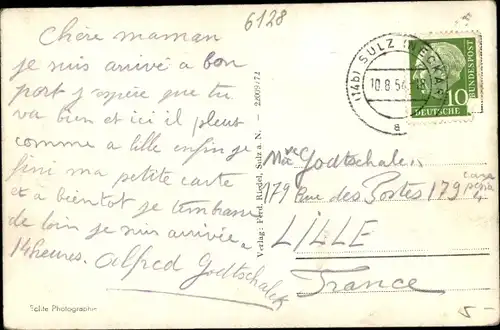 6128
Chère maman
je suis arrivé à bon
port j'espère que tu
va bien et ici il pleut
comme a lille enfin je
fini ma petite carte
et a bientot je t'embrasse
de loin je suis arrivée a
14 heures. Alfred Godtschalck
Echte Photographie
Verlag: Ferd. Riedel, Sulz a. N. -
(14b) SULZ (NECKAR)
10.8.54
a
10
DEUTSCHE
BUNDESPOST
Mme Godtschalck
179 Rue des Postes 179
LILLE
France
5-